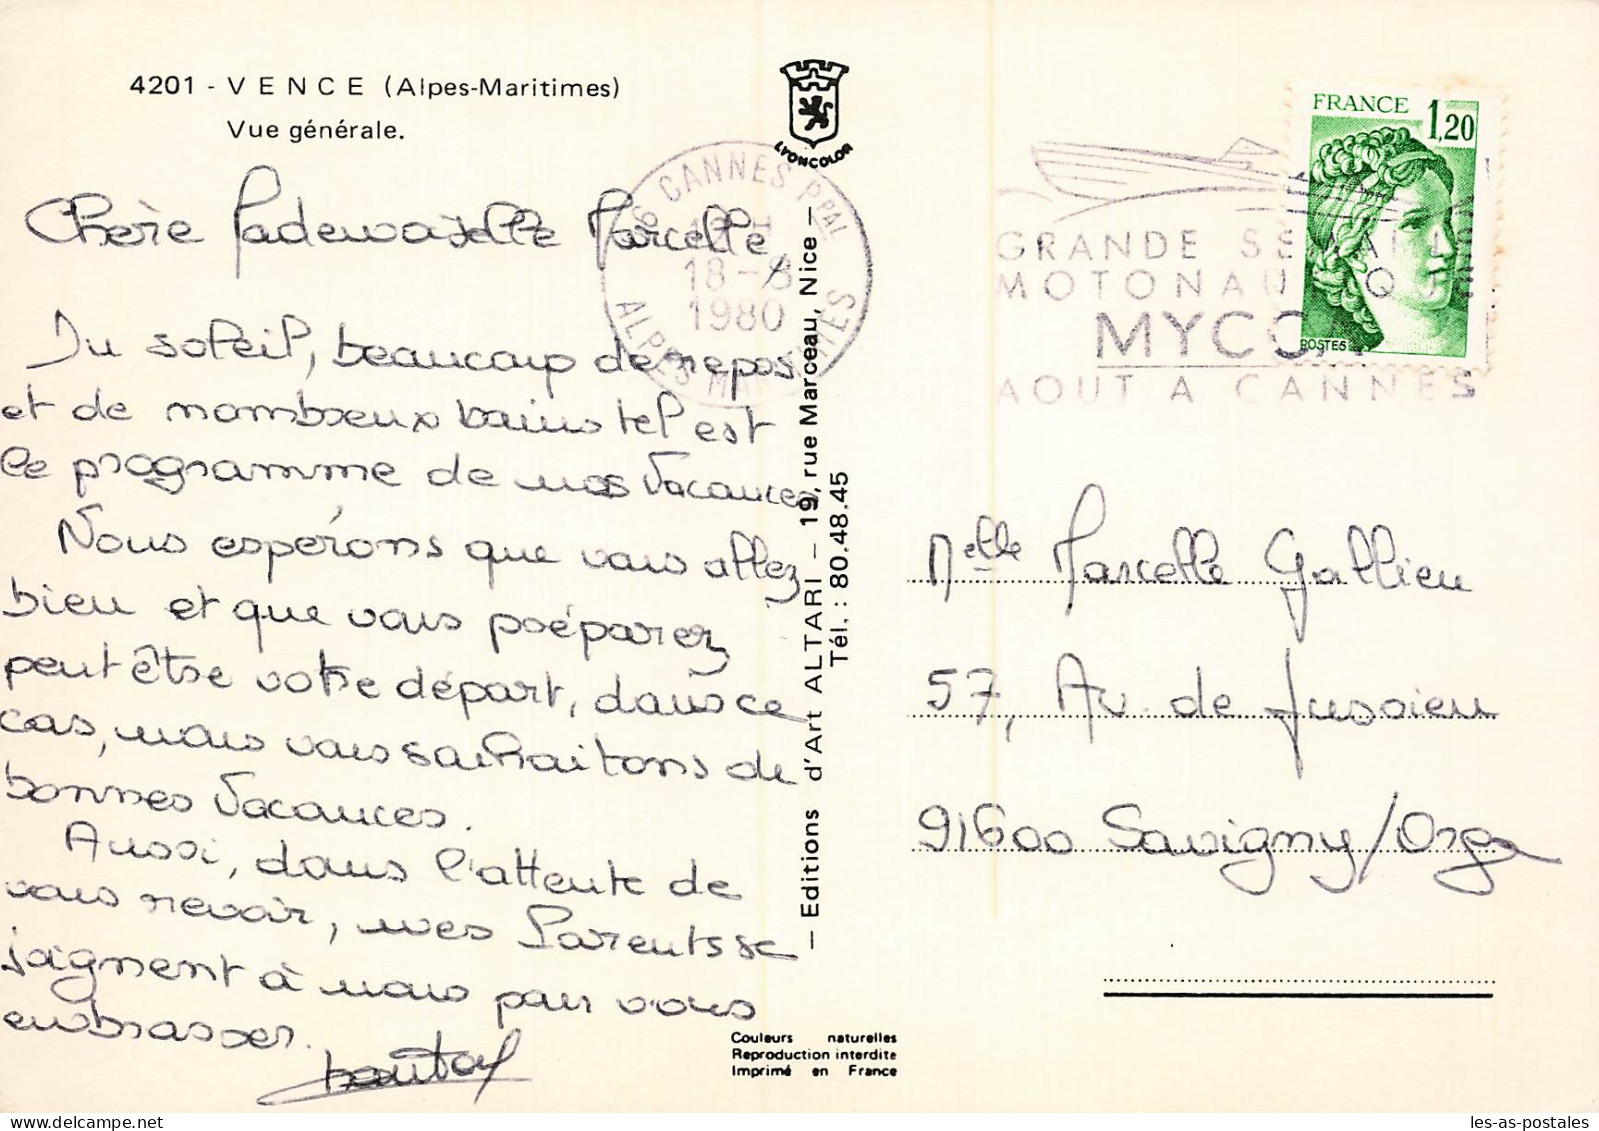 4201 - VENCE (Alpes-Maritimes)
Vue générale.
LYONCOLOR
Chère Mademoiselle Marcelle,
Du soleil, beaucoup de repos
et de nombreux bains tel est
le programme de nos vacances
Nous espérons que vous allez
bien et que vous préparez
peut être votre départ, dans ce
cas, nous vous souhaitons de
bonnes vacances.
Aussi, dans l'attente de
vous revoir, mes Parents se
joignent à nous pour vous
embrasser.
— Editions d'Art ALTARI — 19, rue Marceau, Nice —
Tél. : 80.48.45
06 CANNES PPAL
18-8
1980
ALPES MARITIMES
GRANDE SEMAINE
MOTONAUTIQUE
MYCCA
AOUT A CANNES
FRANCE 1,20
POSTES
Melle Marcelle Gallieu
57, Av. de Jussieu
91600 Savigny/Orge
Couleurs naturelles
Reproduction interdite
Imprimé en France
les-as-postales